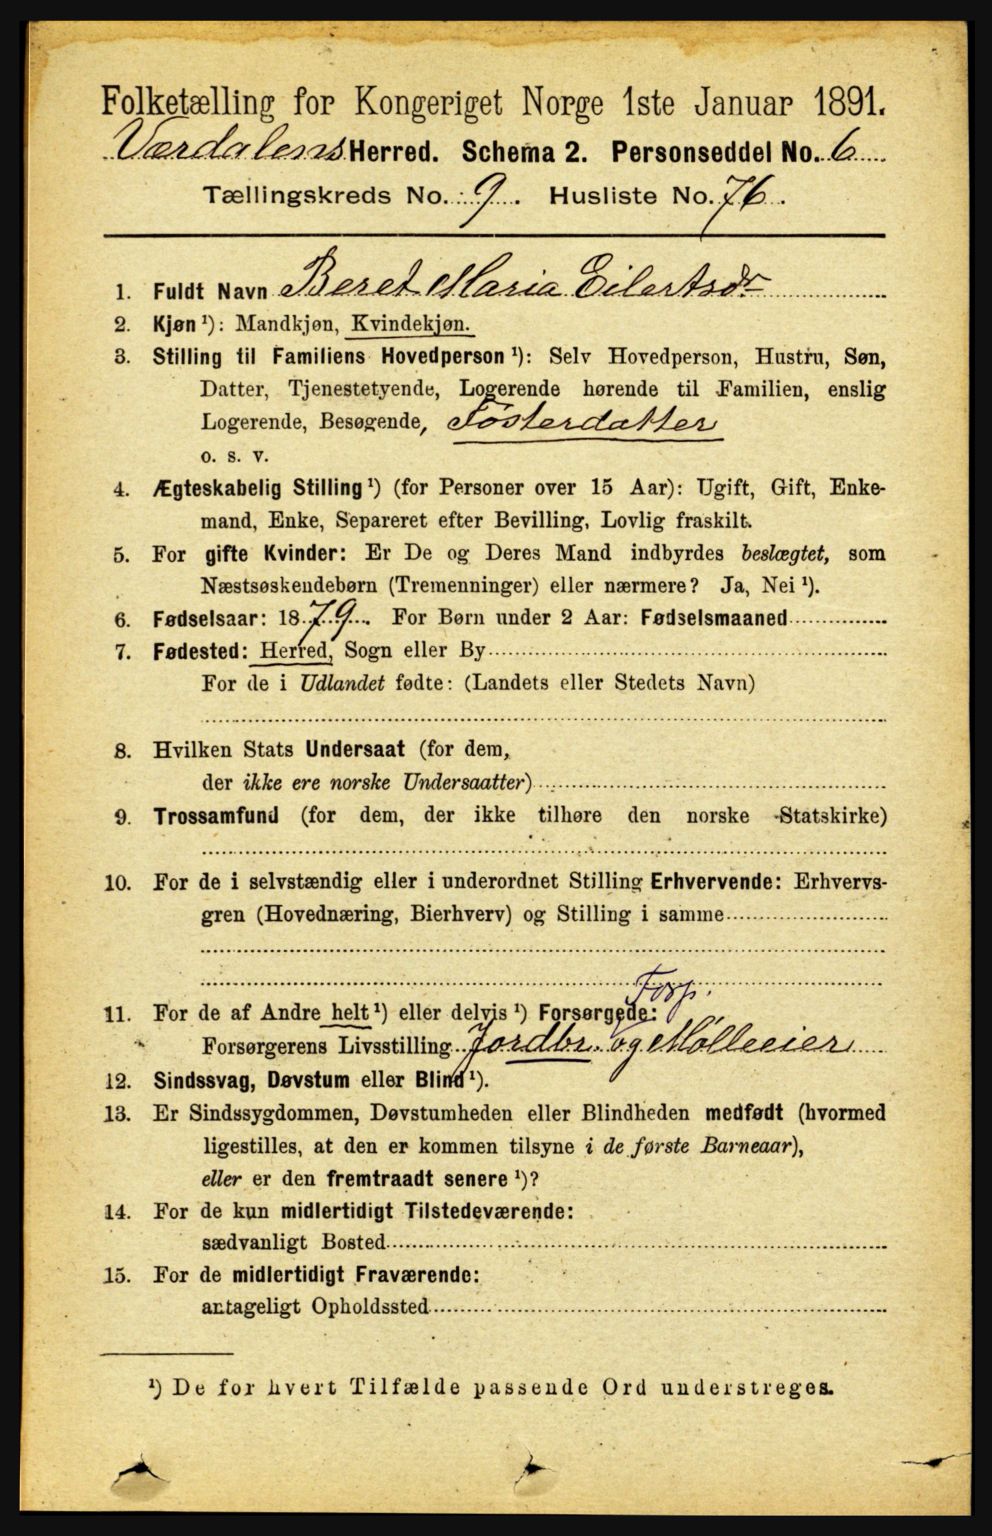 Folketælling for Kongeriget Norge 1ste Januar 1891.
Værdalens Herred. Schema 2. Personseddel No. 6
Tællingskreds No. 9. Husliste No. 76.
1. Fuldt Navn Beret Maria Eilertsdr
2. Kjøn ¹): Mandkjøn, Kvindekjøn.
3. Stilling til Familiens Hovedperson ¹): Selv Hovedperson, Hustru, Søn,
Datter, Tjenestetyende, Logerende hørende til Familien, enslig
Logerende, Besøgende, Fosterdatter
o. s. v.
4. Ægteskabelig Stilling ¹) (for Personer over 15 Aar): Ugift, Gift, Enke-
mand, Enke, Separeret efter Bevilling, Lovlig fraskilt.
5. For gifte Kvinder: Er De og Deres Mand indbyrdes beslægtet, som
Næstsøskendebørn (Tremenninger) eller nærmere? Ja, Nei ¹).
6. Fødselsaar: 1879. For Børn under 2 Aar: Fødselsmaaned
7. Fødested: Herred, Sogn eller By
For de i Udlandet fødte: (Landets eller Stedets Navn)
8. Hvilken Stats Undersaat (for dem,
der ikke ere norske Undersaatter)
9. Trossamfund (for dem, der ikke tilhøre den norske Statskirke)
10. For de i selvstændig eller i underordnet Stilling Erhvervende: Erhvervs-
gren (Hovednæring, Bierhverv) og Stilling i samme
Forp.
11. For de af Andre helt ¹) eller delvis ¹) Forsørgede:
Forsørgerens Livsstilling Jordbr. og Mølleeier
12. Sindssvag, Døvstum eller Blind ¹).
13. Er Sindssygdommen, Døvstumheden eller Blindheden medfødt (hvormed
ligestilles, at den er kommen tilsyne i de første Barneaar),
eller er den fremtraadt senere ¹)?
14. For de kun midlertidigt Tilstedeværende:
sædvanligt Bosted
15. For de midlertidigt Fraværende:
antageligt Opholdssted
¹) De for hvert Tilfælde passende Ord understreges.